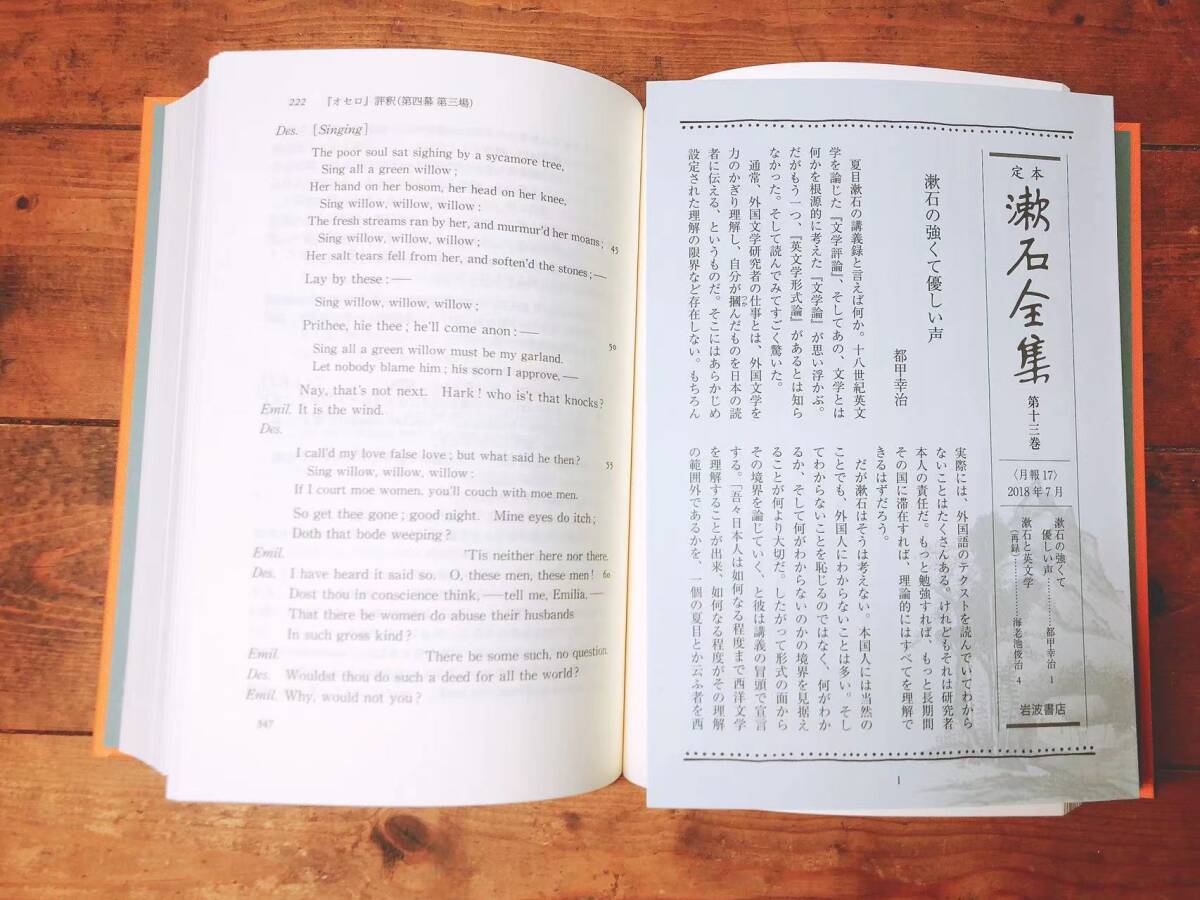 222 『オセロ』評釈(第四幕 第三場)
Des. [Singing]
The poor soul sat sighing by a sycamore tree,
Sing all a green willow;
Her hand on her bosom, her head on her knee,
Sing willow, willow, willow:
The fresh streams ran by her, and murmur'd her moans; 45
Sing willow, willow, willow;
Her salt tears fell from her, and soften'd the stones;—
Lay by these:—
Sing willow, willow, willow;
Prithee, hie thee; he'll come anon:— 50
Sing all a green willow must be my garland.
Let nobody blame him; his scorn I approve,—
Nay, that's not next. Hark! who is't that knocks?
Emil. It is the wind.
Des.
I call'd my love false love; but what said he then? 55
Sing willow, willow, willow:
If I court moe women, you'll couch with moe men.
So get thee gone; good night. Mine eyes do itch;
Doth that bode weeping?
Emil. 'Tis neither here nor there.
Des. I have heard it said so. O, these men, these men! 60
Dost thou in conscience think,—tell me, Emilia,—
That there be women do abuse their husbands
In such gross kind?
Emil. There be some such, no question.
Des. Wouldst thou do such a deed for all the world?
Emil. Why, would not you?
347
定本
漱石全集
第十三巻
〈月報17〉
2018年7月
漱石の強くて
優しい声…………都甲幸治 1
漱石と英文学
(再録)…………海老池俊治 4
岩波書店
漱石の強くて優しい声
都甲幸治
夏目漱石の講義録と言えば何か。十八世紀英文
学を論じた『文学評論』、そしてあの、文学とは
何かを根源的に考えた『文学論』が思い浮かぶ。
だがもう一つ、『英文学形式論』があるとは知ら
なかった。そして読んでみてすごく驚いた。
通常、外国文学研究者の仕事とは、外国文学を
力のかぎり理解し、自分が摑んだものを日本の読
つか
者に伝える、というものだ。そこにはあらかじめ
設定された理解の限界など存在しない。もちろん
実際には、外国語のテクストを読んでいてわから
ないことはたくさんある。けれどもそれは研究者
本人の責任だ。もっと勉強すれば、もっと長期間
その国に滞在すれば、理論的にはすべてを理解で
きるはずだろう。
だが漱石はそうは考えない。本国人には当然の
ことでも、外国人にわからないことは多い。そし
てわからないことを恥じるのではなく、何がわか
るか、そして何がわからないのかの境界を見据え
ることが何より大切だ。したがって形式の面から
その境界を論じていく、と彼は講義の冒頭で宣言
する。「吾々日本人は如何なる程度まで西洋文学
を理解することが出来、如何なる程度がその理解
の範囲外であるかを、一個の夏目とか云ふ者を西
1